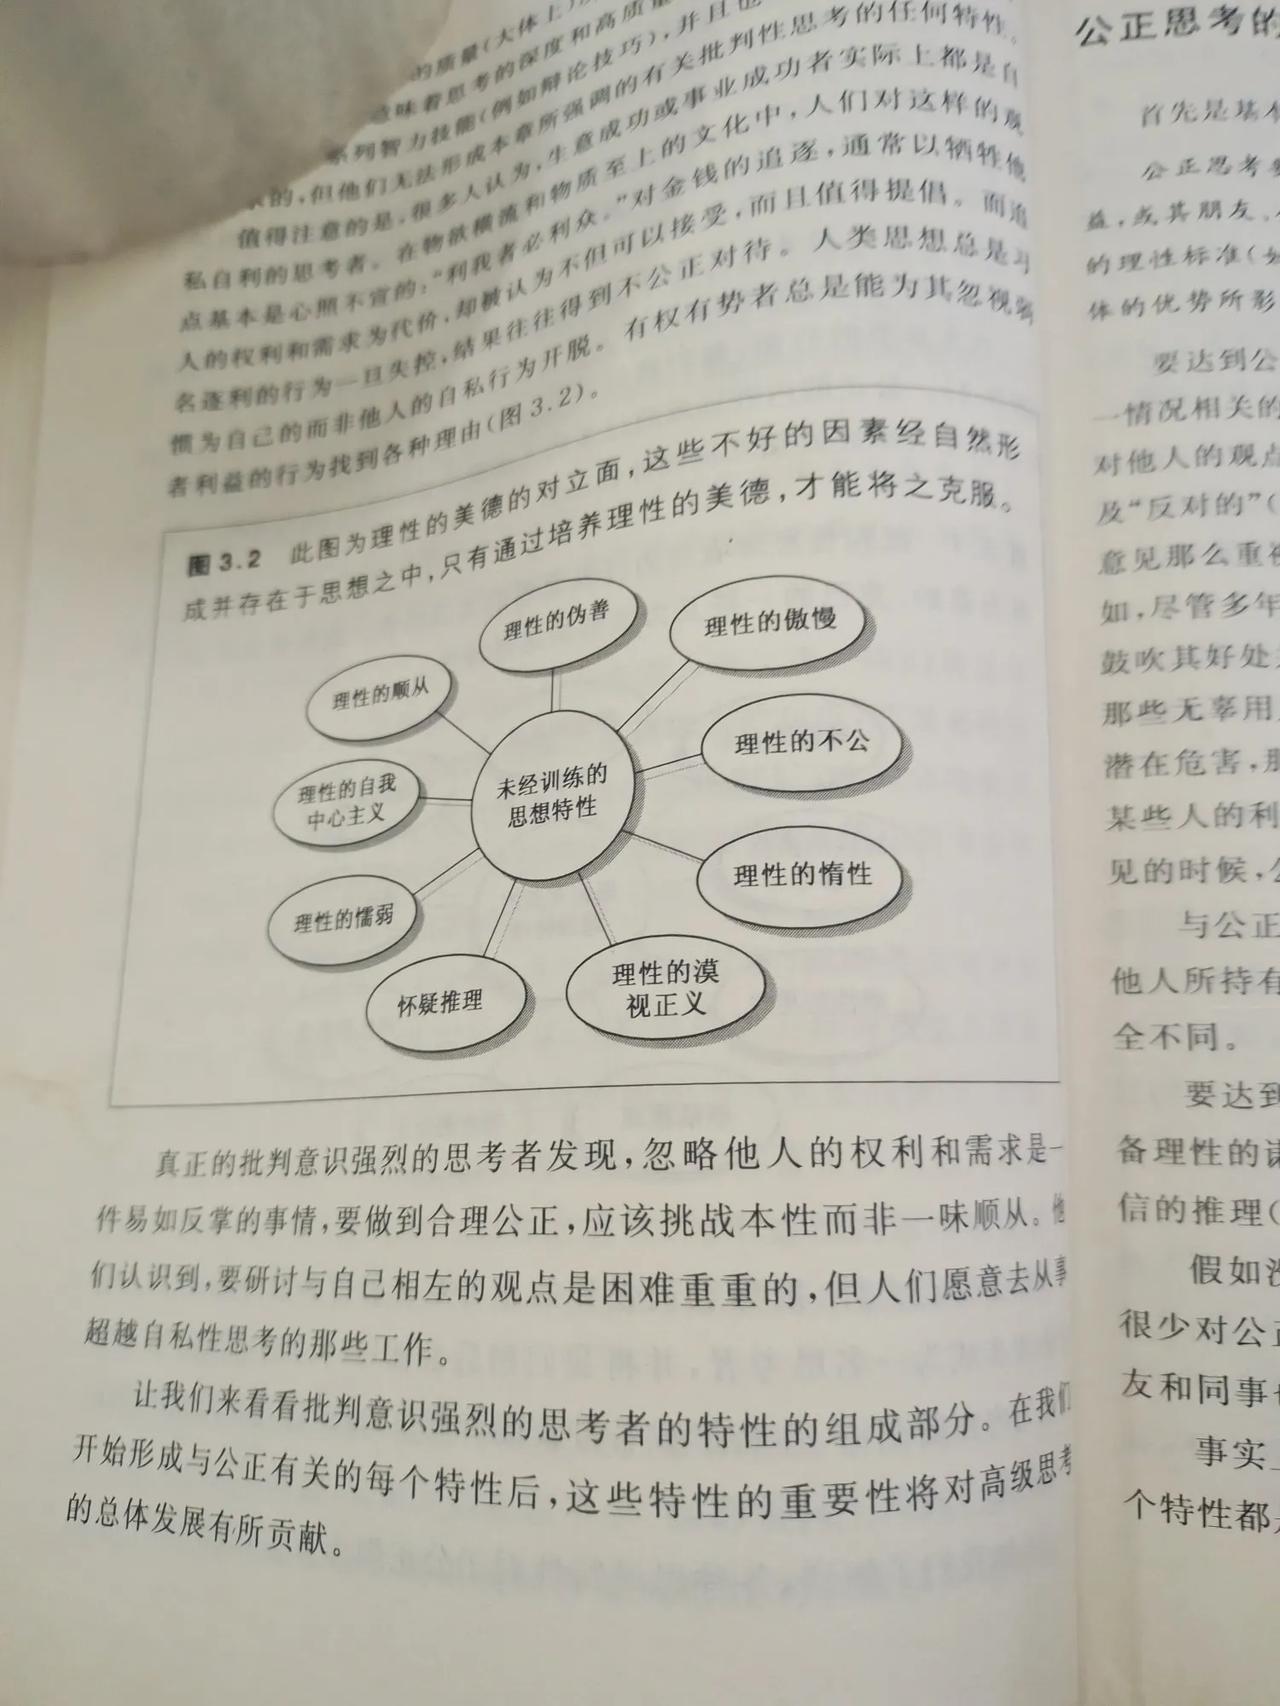 的质量(大体上)
意味着思考的深度和高质量
系列智力技能(例如辩论技巧),并且也
的,但他们无法形成本章所强调的有关批判性思考的任何特性。
值得注意的是,很多人认为,生意成功或事业成功者实际上都是自
私自利的思考者。在物欲横流和物质至上的文化中,人们对这样的观
点基本是心照不宣的:“利我者必利众。”对金钱的追逐,通常以牺牲他
人的权利和需求为代价,却被认为不但可以接受,而且值得提倡。而追
名逐利的行为一旦失控,结果往往得到不公正对待。人类思想总是习
惯为自己的而非他人的自私行为开脱。有权有势者总是能为其忽视弱
者利益的行为找到各种理由(图3.2)。
图3.2 此图为理性的美德的对立面,这些不好的因素经自然形
成并存在于思想之中,只有通过培养理性的美德,才能将之克服。
理性的伪善
理性的傲慢
理性的顺从
理性的不公
未经训练的
思想特性
理性的自我
中心主义
理性的惰性
理性的懦弱
理性的漠
视正义
怀疑推理
真正的批判意识强烈的思考者发现,忽略他人的权利和需求是一
件易如反掌的事情,要做到合理公正,应该挑战本性而非一味顺从。他
们认识到,要研讨与自己相左的观点是困难重重的,但人们愿意去从事
超越自私性思考的那些工作。
让我们来看看批判意识强烈的思考者的特性的组成部分。在我们
开始形成与公正有关的每个特性后,这些特性的重要性将对高级思考
的总体发展有所贡献。
公正思考的
首先是基本
公正思考
益,或其朋友、
的理性标准(
体的优势所影
要达到公
一情况相关的
对他人的观点
及“反对的”(
意见那么重视
如,尽管多年
鼓吹其好处
那些无辜用
潜在危害,
某些人的利
见的时候,
与公正
他人所持有
全不同。
要达到
备理性的谦
信的推理(
假如没
很少对公正
友和同事
事实
个特性都